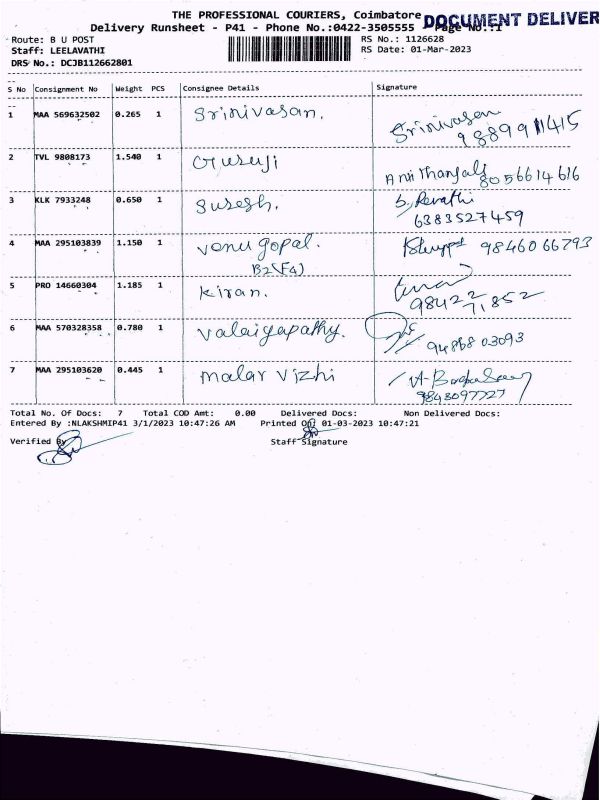 THE PROFESSIONAL COURIERS, Coimbatore
DOCUMENT DELIVER
Delivery Runsheet - P41 - Phone No.:0422-3505555 Page No.:1
Route: B U POST
RS No.: 1126628
Staff: LEELAVATHI
RS Date: 01-Mar-2023
DRS No.: DCJB112662801
S No Consignment No Weight PCS Consignee Details Signature
1 MAA 569632502 0.265 1 Srinivasan. Srinivasan
9889911415
2 TVL 9808173 1.540 1 Guruji
8056614616
3 KLK 7933248 0.650 1 Suresh. S. Revathi
6383527459
4 MAA 295103839 1.150 1 Venu gopal. 9846066793
B2(F4)
5 PRO 14660304 1.185 1 Kiran.
98422 71852
6 MAA 570328358 0.780 1 Valaiyapathy.
94868 03093
7 MAA 295103620 0.445 1 Malar Vizhi
9843097727
Total No. Of Docs: 7 Total COD Amt: 0.00 Delivered Docs: Non Delivered Docs:
Entered By :NLAKSHMIP41 3/1/2023 10:47:26 AM Printed On: 01-03-2023 10:47:21
Verified By
Staff Signature